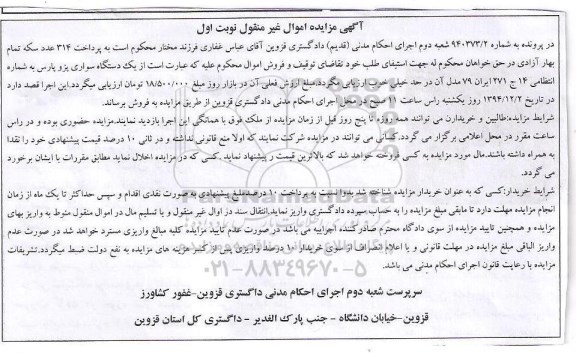 آگهی مزایده اموال غیر منقول نوبت اول
در پرونده به شماره ۹۴۰۳۷۳/۲ شعبه دوم اجرای احکام مدنی (قدیم) دادگستری قزوین آقای عباس غفاری فرزند مختار محکوم است به پرداخت ۳۱۴ عدد سکه تمام
بهار آزادی در حق خواهان محکوم له جهت استیفای طلب خود تقاضای توقیف و فروش اموال محکوم علیه که عبارت است از یک دستگاه سواری پژو پارس به شماره
انتظامی ۱۴ ج ۲۷۱ ایران ۷۹ مدل آن در حد خیلی خوب ارزیابی میگردد.مبلغ ارزش فعلی آن در بازار روز مبلغ ۱۸/۵۰۰/۰۰۰ تومان ارزیابی میگردد.این اجرا قصد دارد
در تاریخ ۱۳۹۴/۱۲/۲ روز یکشنبه راس ساعت ۱۱ صبح در محل اجرای احکام مدنی دادگستری قزوین از طریق مزایده به فروش برساند.
شرایط مزایده:طالبین و خریداران می توانند همه روزه تا پنج روز قبل از زمان مزایده از ملک فوق با همانگی این اجرا بازدید نمایند.مزایده حضوری بوده و در راس
ساعت مقرر در محل اعلامی برگزار می گردد.کسانی می توانند در مزایده شرکت نمایند که اولا منع قانونی نداشته و در ثانی ۱۰ درصد قیمت پیشنهادی خود را نقدا
به همراه داشته باشند.مال مورد مزایده به کسی فروخته خواهد شد که بالاترین قیمت را پیشنهاد نماید .کسی که در مزایده اخلال نماید مطابق مقررات با ایشان برخورد
می گردد.
شرایط خریدار:کسی که به عنوان خریدار مزایده شناخته شد بدوا نسبت به پرداخت ۱۰ درصدمبلغ پیشنهادی به صورت نقدی اقدام و سپس حداکثر تا یک ماه از زمان
انجام مزایده مهلت دارد تا مابقی مبلغ مزایده را به حساب سپرده دادگستری واریز نماید.انتقال سند در اوال غیر منقول و یا تسلیم مال در اموال منقول منوط به واریز بهای
مزایده و همچنین تایید مزایده از سوی دادگاه محترم صادر کننده اجراییه می باشد در صورت عدم تایید مزایده کلیه مبالغ واریزی مسترد خواهد شد در صورت عدم
واریز الباقی مبلغ مزایده در مهلت قانونی و یا اعلام انصراف از سوی خریدار ۱۰ درصد واریزی پس از کسر هزینه های مزایده به نفع دولت ضبط میگردد.تشریفات
مزایده با رعایت قانون اجرای احکام مدنی می باشد.
۰۲۱-۸۸۳۴۹۶۷۰-۵
سرپرست شعبه دوم اجرای احکام مدنی داگستری قزوین-غفور کشاورز
قزوین-خیابان دانشگاه - جنب پارک الغدیر - داگستری کل استان قزوین